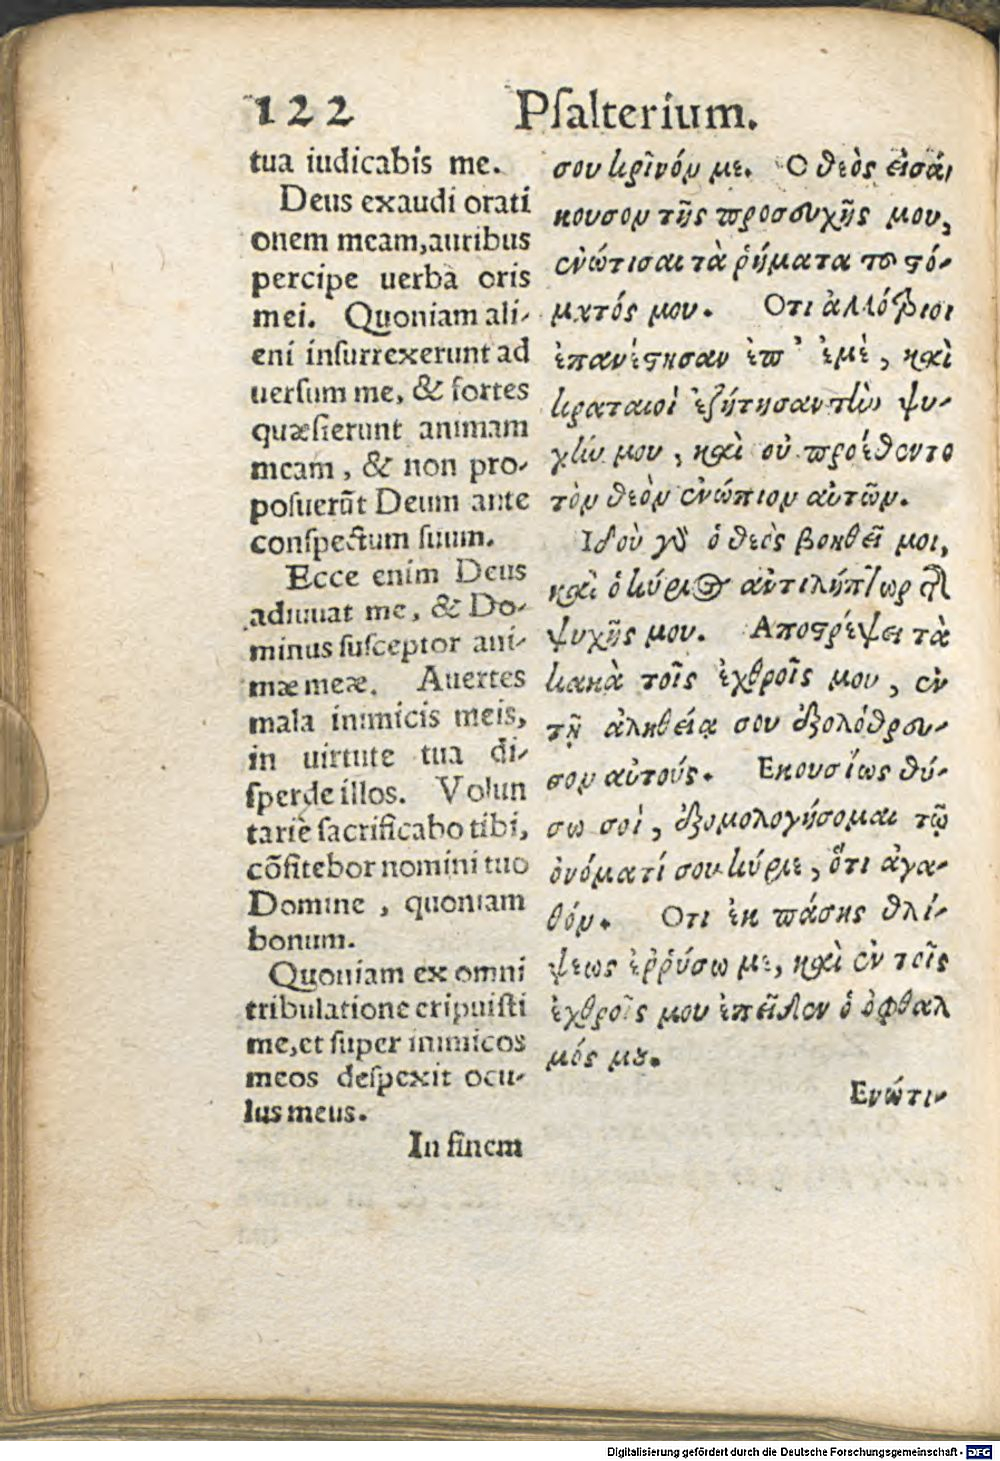 122 Psalterium.
tua iudicabis me.
Deus exaudi orati
onem meam, auribus
percipe uerba oris
mei. Quoniam ali-
eni insurrexerunt ad
uersum me, & fortes
quæsierunt animam
meam, & non pro-
posuerūt Deum ante
conspectum suum.
Ecce enim Deus
adiuuat me, & Do-
minus susceptor ani-
mæ meæ. Auertes
mala inimicis meis,
in uirtute tua di-
sperde illos. Volun
tariè sacrificabo tibi,
cōfitebor nomini tuo
Domine, quoniam
bonum.
Quoniam ex omni
tribulatione eripuisti
me, et super inimicos
meos despexit ocu-
lus meus.
In finem
σου κρῖνόν με. Ο θεὸς εἰσά-
κουσον τῆς προσευχῆς μου,
ἐνώτισαι τὰ ῥήματα τοῦ στό-
ματός μου. Οτι ἀλλότριοι
ἐπανέστησαν ἐπ' ἐμὲ, καὶ
κραταιοὶ ἐζήτησαν τὴν ψυ-
χήν μου, καὶ οὐ προέθεντο
τὸν θεὸν ἐνώπιον αὐτῶν.
Ιδοὺ γὰρ ὁ θεὸς βοηθεῖ μοι,
καὶ ὁ κύριος ἀντιλήπτωρ τῆς
ψυχῆς μου. Αποστρέψει τὰ
κακὰ τοῖς ἐχθροῖς μου, ἐν
τῇ ἀληθείᾳ σου ἐξολόθρευ-
σον αὐτούς. Εκουσίως θύ-
σω σοί, ἐξομολογήσομαι τῷ
ὀνόματί σου κύριε, ὅτι ἀγα-
θόν. Οτι ἐκ πάσης θλί-
ψεως ἐῤῥύσω με, καὶ ἐν τοῖς
ἐχθροῖς μου ἐπεῖδεν ὁ ὀφθαλ
μός μου.
Ενώτι-
Digitalisierung gefördert durch die Deutsche Forschungsgemeinschaft - DFG